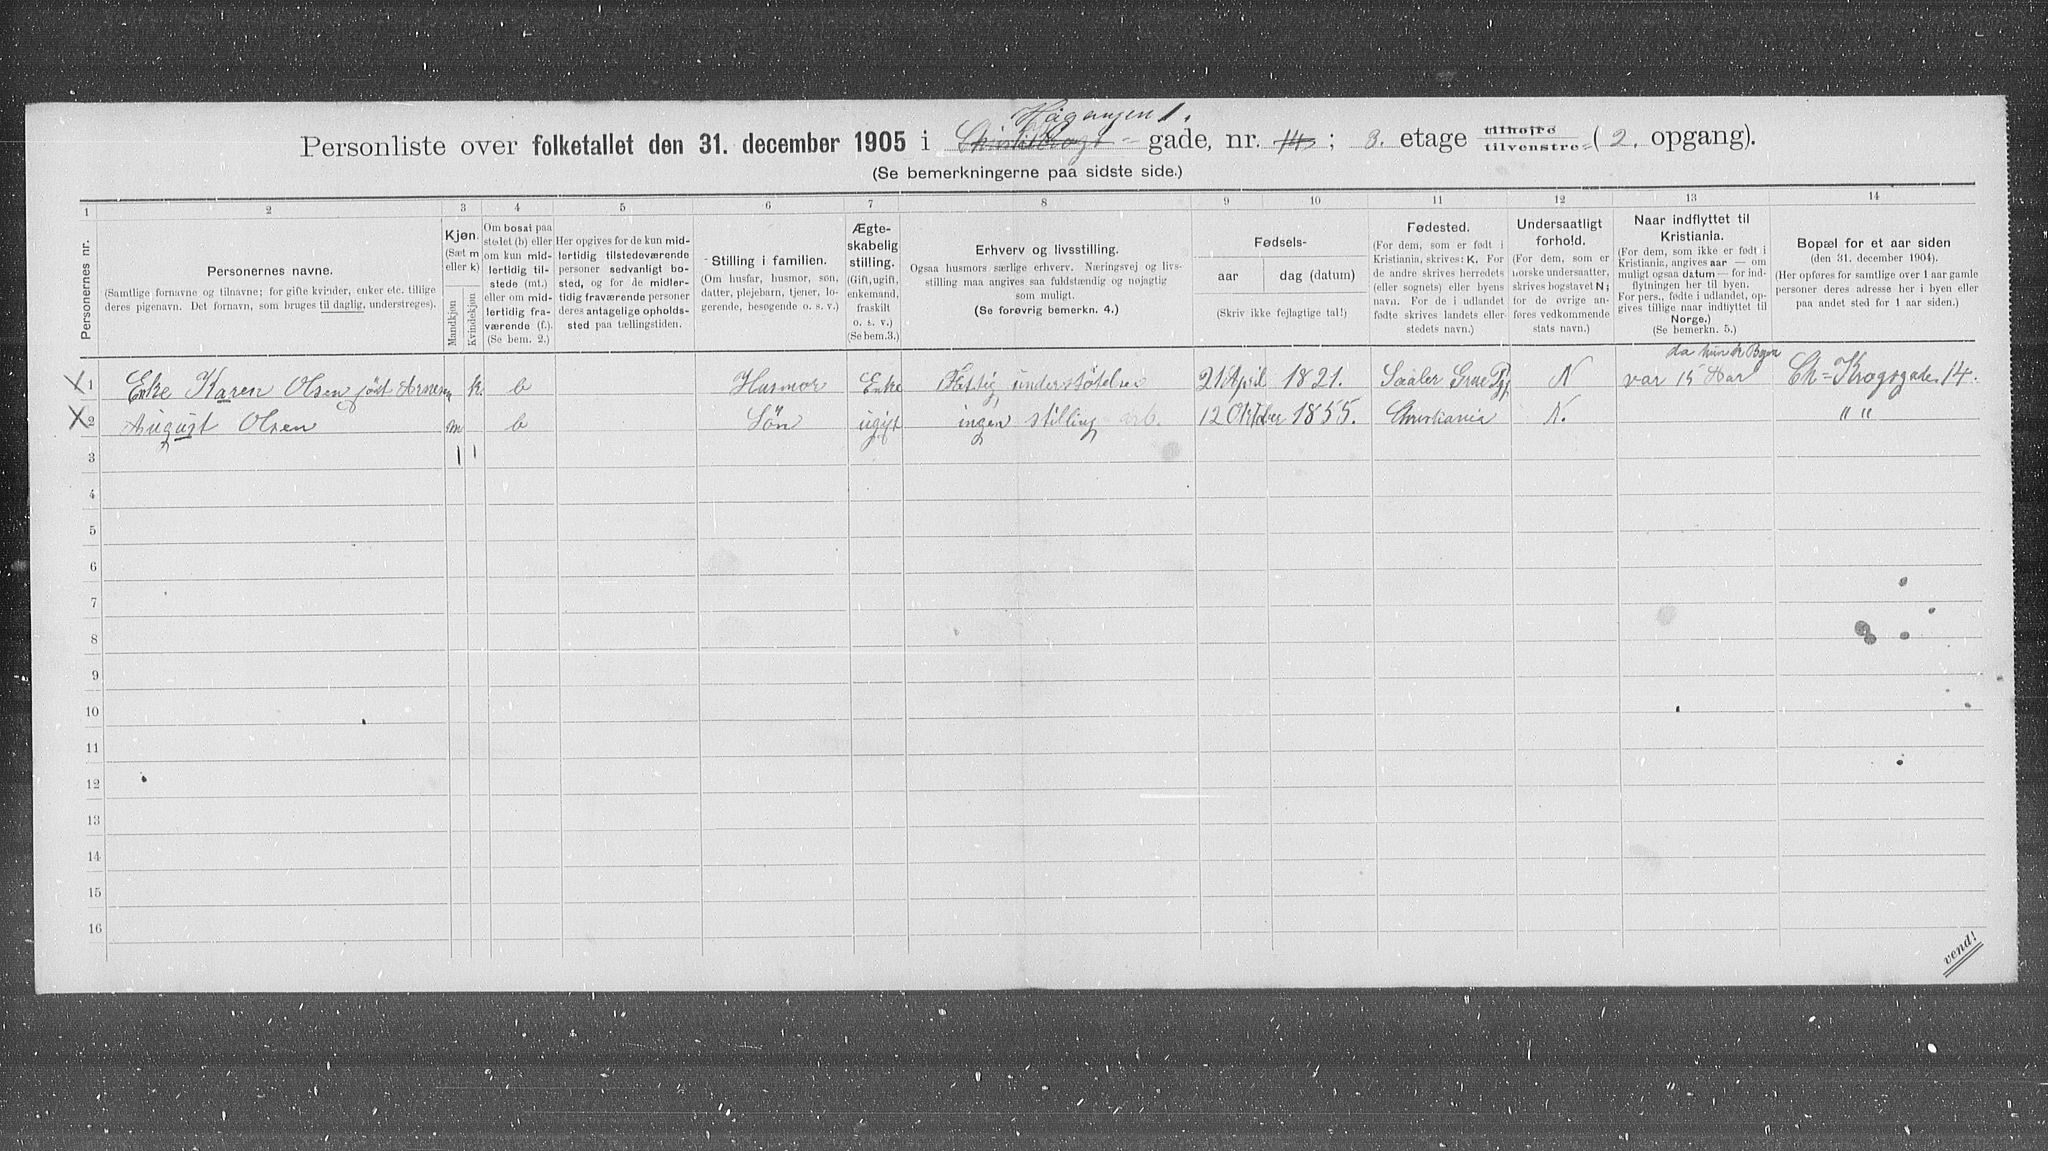 Personliste over folketallet den 31. december 1905 i gade, nr. 14; 3. etage tilhøjre tilvenstre (2. opgang).
(Se bemerkningerne paa sidste side.)
1 2 3 4 5 6 7 8 9 10 11 12 13 14
Personernes nr.
Personernes navne.
(Samtlige fornavne og tilnavne; for gifte kvinder, enker etc. tillige
deres pigenavn. Det fornavn, som bruges til daglig, understreges).
Kjøn.
(Sæt m
eller k)
Mandkjøn
Kvindekjøn
Om bosat paa
stedet (b) eller
om kun mid-
lertidig til-
stede (mt.)
eller om mid-
lertidig fra-
værende (f.).
(Se bem. 2.)
Her opgives for de kun mid-
lertidig tilstedeværende
personer sedvanligt bo-
sted, og for de midler-
tidig fraværende personer
deres antagelige opholds-
sted paa tællingstiden.
Stilling i familien.
(Om husfar, husmor, søn,
datter, plejebarn, tjener, lo-
gerende, besøgende o. s. v.)
Ægte-
skabelig
stilling.
(Gift, ugift,
enkemand,
fraskilt
o. s. v.)
(Se bem.3.)
Erhverv og livsstilling.
Ogsaa husmors særlige erhverv. Næringsvej og livs-
stilling maa angives saa fuldstændig og nøjagtig
som muligt.
(Se forøvrig bemerkn. 4.)
Fødsels-
aar
dag (datum)
(Skriv ikke fejlagtige tal!)
Fødested.
(For dem, som er født i
Kristiania, skrives: K. For
de andre skrives herredets
(eller sognets) eller byens
navn. For de i udlandet
fødte skrives landets eller
stedets navn.)
Undersaatligt
forhold.
(For dem, som er
norske undersaatter,
skrives bogstavet N;
for de øvrige an-
føres vedkommende
stats navn.)
Naar indflyttet til
Kristiania.
(For dem, som ikke er født i
Kristiania, angives aar — om
muligt ogsaa datum — for ind-
flytningen her til byen.
For pers., fødte i udlandet, op-
gives tillige naar indflyttet til
Norge.)
(Se bemerkn. 5.)
Bopæl for et aar siden
(den 31. december 1904).
(Her opføres for samtlige over 1 aar gamle
personer deres adresse her i byen eller
paa andet sted for 1 aar siden.)
1 Enke Karen Olsen født k. b Husmor Enke Fattig understøtelse 21 April 1821. N var 15 Aar Ch=Krogsgade 14.
2 August Olsen m b Søn ugift ingen stilling 12 Oktober 1855. Christiania N. " "
3
4
5
6
7
8
9
10
11
12
13
14
15
16
vend!